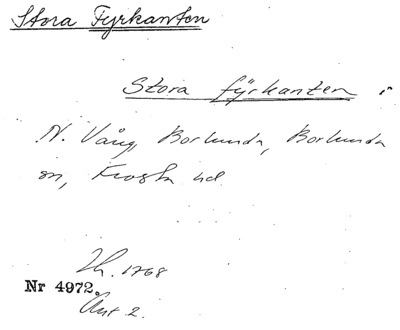 Stora Fyrkanten
Stora fyrkanten i
N. Vång, Borlunda, Borlunda
sn, Frosta hd
Th. 1768
Nr 4972.
Akt 2.